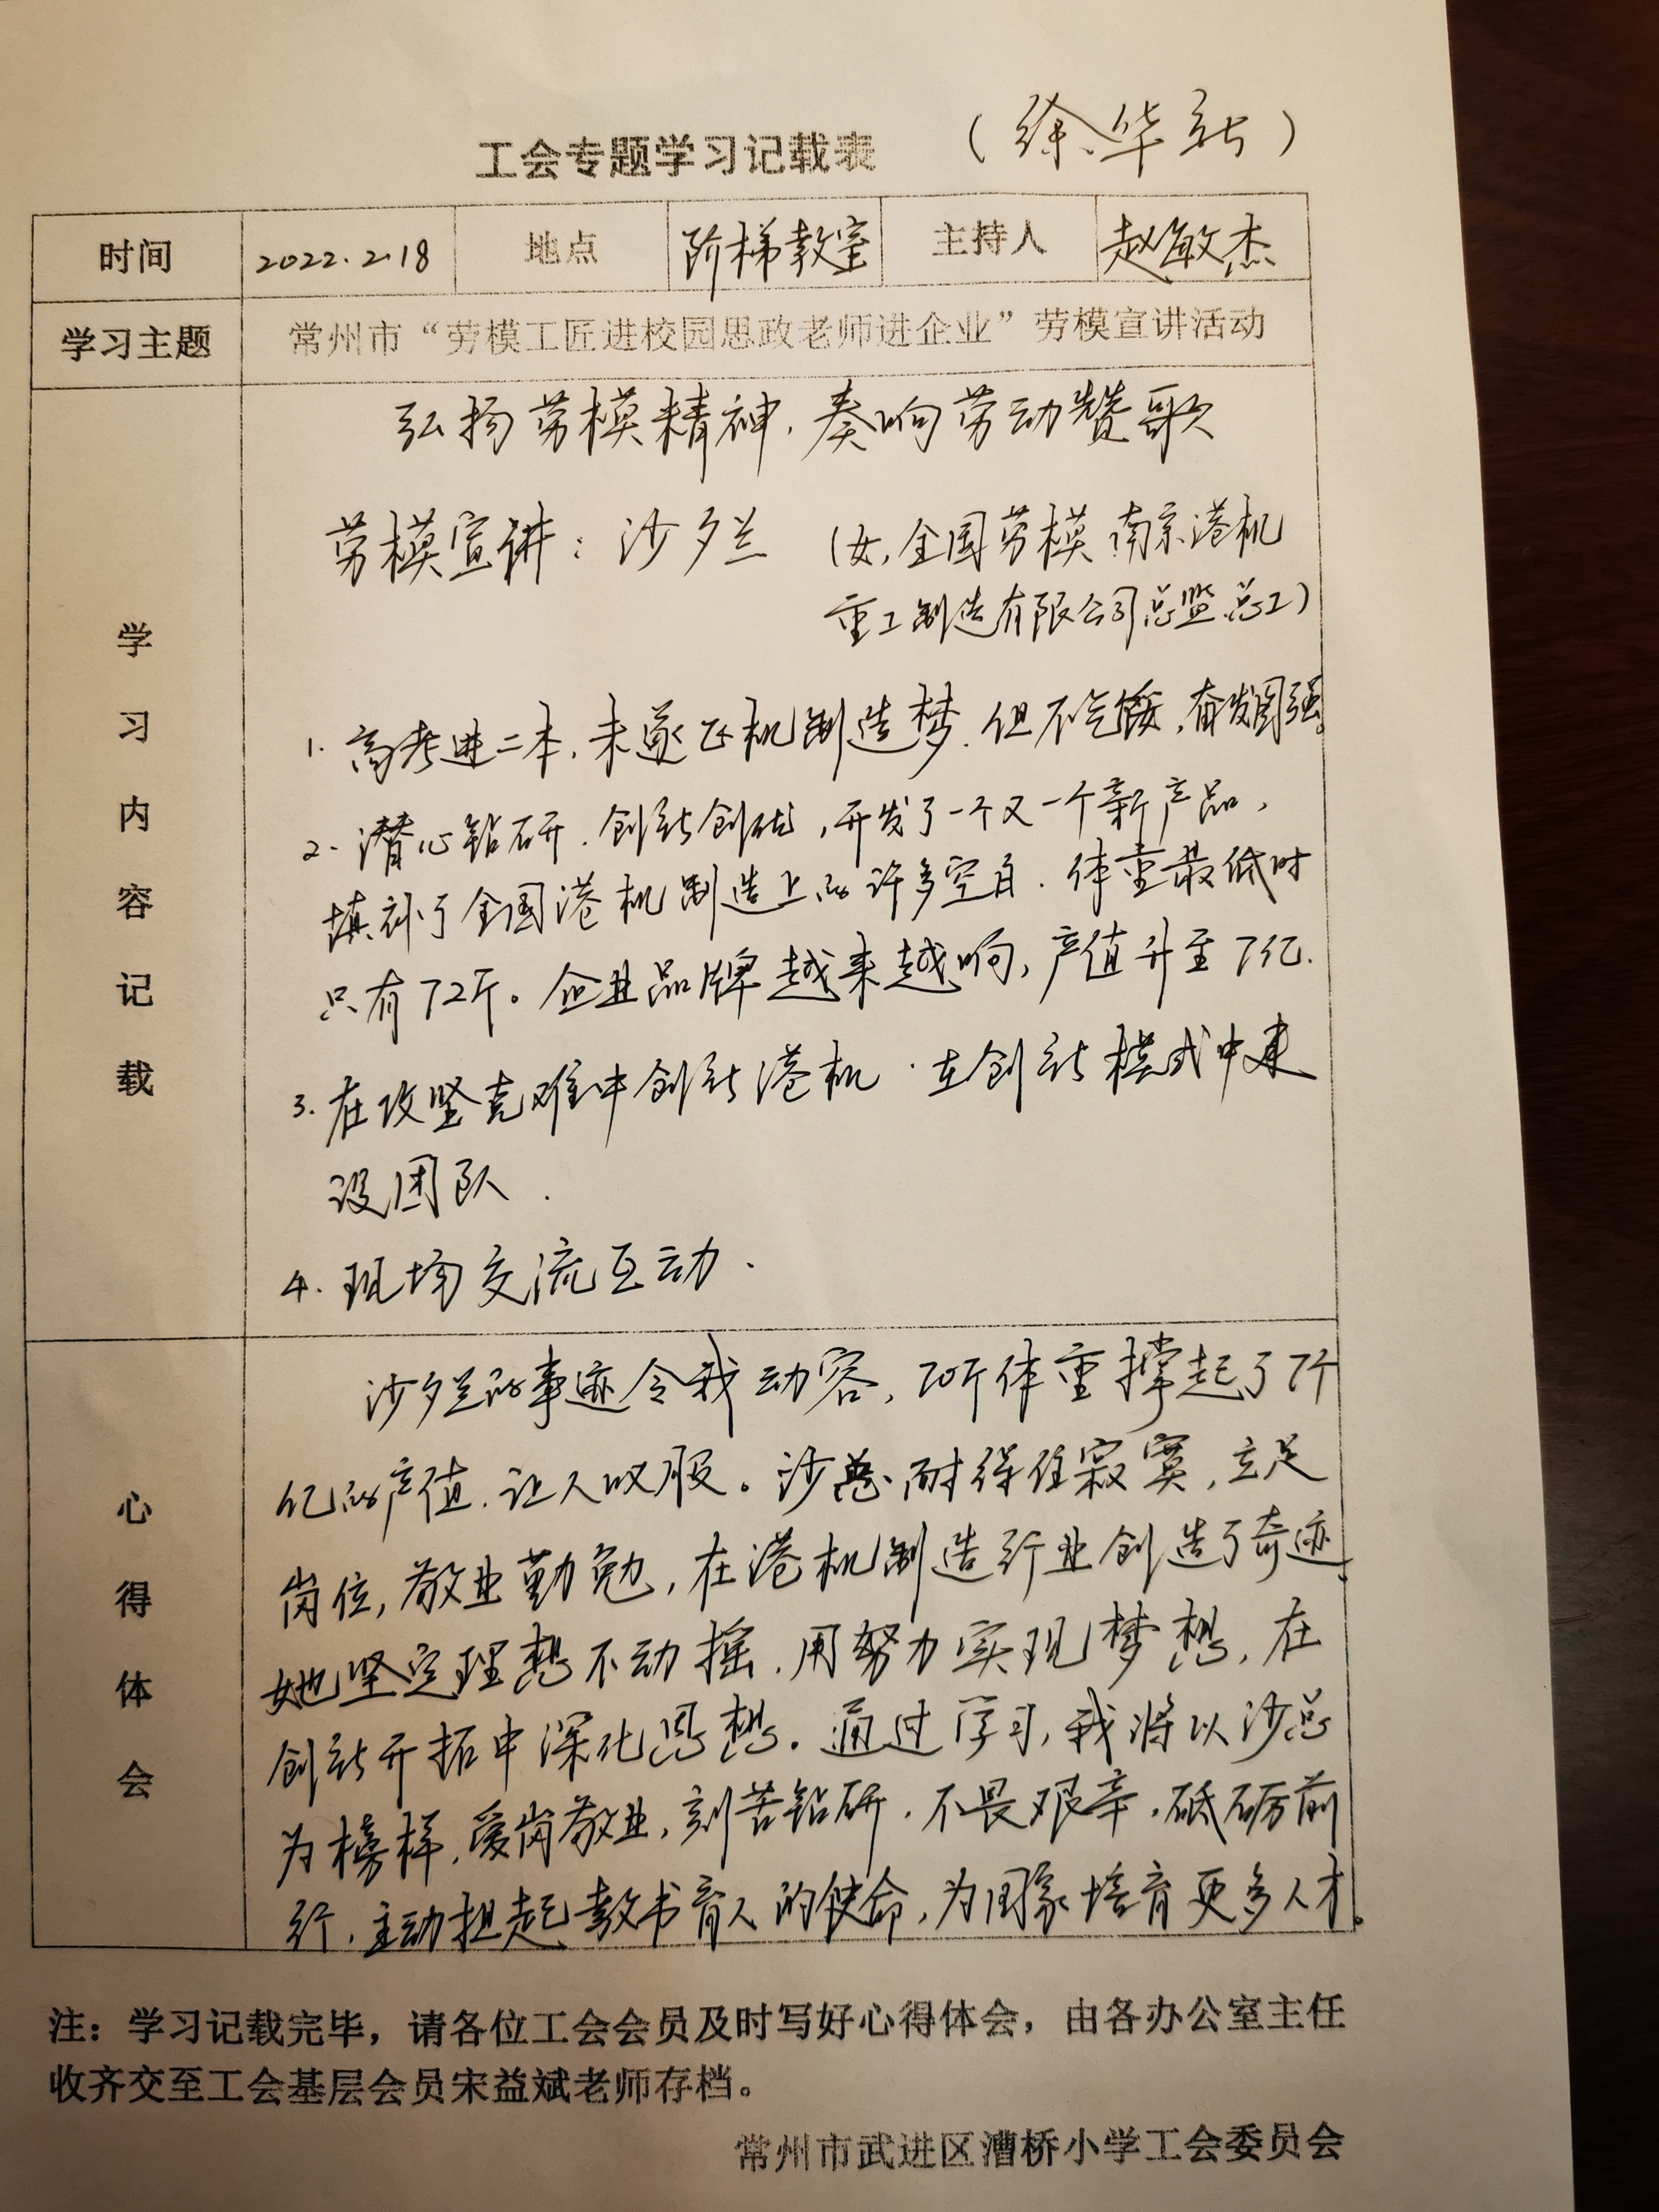 工会专题学习记载表 （徐华新）
时间 2022.2.18 地点 阶梯教室 主持人 赵敏杰
学习主题 常州市“劳模工匠进校园思政老师进企业”劳模宣讲活动
学习内容记载
弘扬劳模精神，奏响劳动赞歌
劳模宣讲：沙夕兰 （女，全国劳模 南京港机
重工制造有限公司总监.总工）
1. 高考进二本，未遂飞机制造梦，但不气馁，奋发图强。
2. 潜心钻研，创新创优，开发了一个又一个新产品，
填补了全国港机制造上的许多空白．体重最低时
只有72斤。企业品牌越来越响，产值升至7亿．
3. 在攻坚克难中创新港机．在创新模式中建
设团队．
4. 现场交流互动．
心得体会
沙夕兰的事迹令我动容，70斤体重撑起了7个
亿的产值，让人叹服。沙总耐得住寂寞，立足
岗位，敬业勤勉，在港机制造行业创造了奇迹，
她坚定理想不动摇，用努力实现梦想，在
创新开拓中深化思想。通过学习，我将以沙总
为榜样，爱岗敬业，刻苦钻研，不畏艰辛，砥砺前
行，主动担起教书育人的使命，为国家培育更多人才。
注：学习记载完毕，请各位工会会员及时写好心得体会，由各办公室主任
收齐交至工会基层会员宋益斌老师存档。
常州市武进区漕桥小学工会委员会